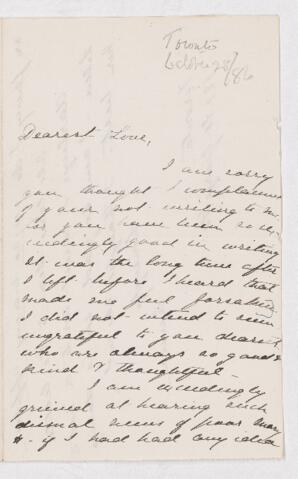 Toronto
October 28/86
Dearest Love,
I am sorry
you thought I complained
of your not writing to me
for you have been so ex-
ceedingly good in writing
it was the long time after
I left before I heard that
made me feel forsaken
I did not intend to seem
ungrateful to you dearest
who are always so good &
kind & thoughtful -
I am exceedingly
grieved at hearing such
dismal news of poor Mary
if I had had any idea